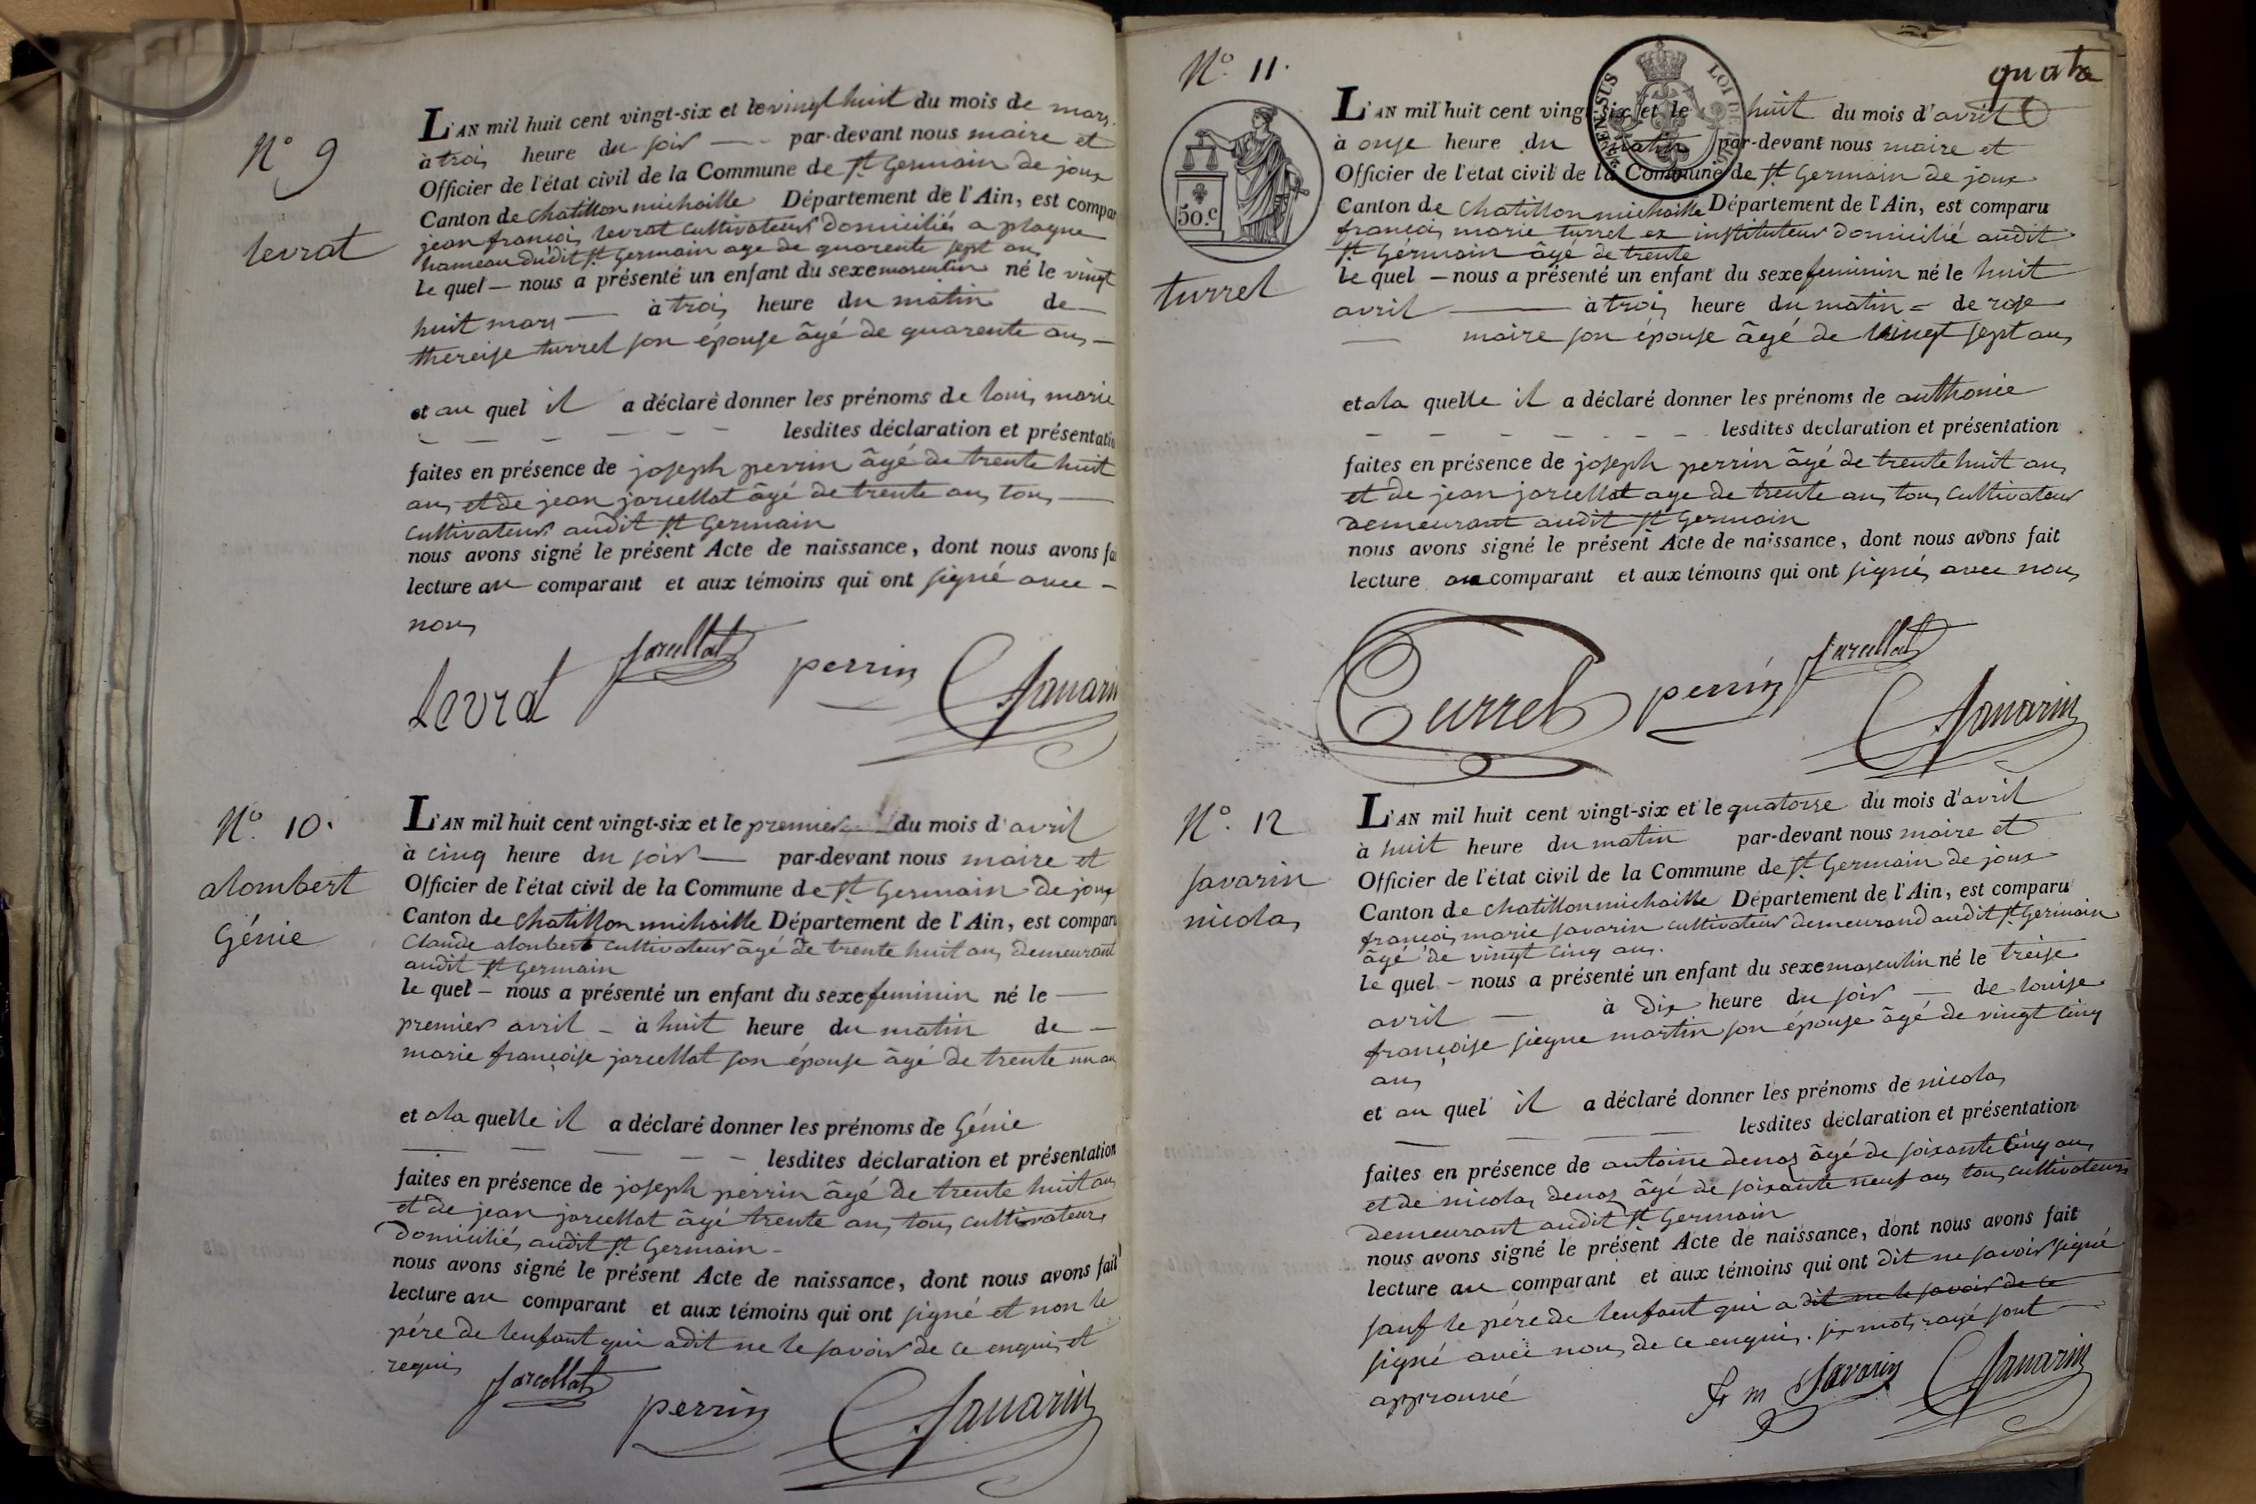 N° 9
levrat
L'AN mil huit cent vingt-six et le vingt huit du mois de mars
à trois heure du soir par-devant nous maire et
Officier de l'état civil de la Commune de St Germain de joux
Canton de chatillon michaille Département de l'Ain, est compar
jean françois levrat cultivateur domiciliés a plagne
hameau dudit St Germain age de quarente sept ans
le quel — nous a présenté un enfant du sexe né le vingt
huit mars — à trois heure du matin de —
thereise turrel son épouse âgé de quarente ans —
et au quel il a déclaré donner les prénoms de louis marie
lesdites déclaration et présentatio
faites en présence de joseph perrin âgé de trente huit
ans et de jean jarcellat âgé de trente ans tous —
cultivateurs audit St Germain
nous avons signé le présent Acte de naissance, dont nous avons fai
lecture au comparant et aux témoins qui ont signé avec —
nous
Levrat jarcellat perrin Savarin
N° 10.
alombert
Génie
L'AN mil huit cent vingt-six et le premier — du mois d'avril
à cinq heure du soir — par-devant nous maire et
Officier de l'état civil de la Commune de St Germain de joux
Canton de chatillon michaille Département de l'Ain, est comparu
Claude alombert cultivateur âgé de trente huit ans demeurant
audit St Germain
le quel — nous a présenté un enfant du sexe feminin né le —
premier avril — à huit heure du matin de —
marie françoise jarcellat son épouse âgé de trente un an
et ala quelle il a déclaré donner les prénoms de Génie
lesdites déclaration et présentation
faites en présence de joseph perrin âgé de trente huit ans
et de jean jarcellat âgé trente ans tous cultivateurs
domiciliés audit St Germain —
nous avons signé le présent Acte de naissance, dont nous avons fait
lecture au comparant et aux témoins qui ont signé et non le
pére de lenfant qui a dit ne le savoir de ce enquis et
requis
jarcellat perrin Savarin
N° 11.
turrel
50.c
LOI DE
quatre
L'AN mil huit cent vingt-six et le huit du mois d'avril
à onse heure du matin par-devant nous maire et
Officier de l'état civil de la Commune de St Germain de joux
Canton de Chatillon michaille Département de l'Ain, est comparu
françois marie turrel ex instituteur domicilié audit
St Gérmain âgé de trente
le quel — nous a présenté un enfant du sexe feminin né le huit
avril — à trois heure du matin = de rose
— maire son épouse âgé de vingt sept ans
et ala quelle il a déclaré donner les prénoms de anthonie
lesdites déclaration et présentation
faites en présence de joseph perrin âgé de trente huit ans
et de jean jarcellat age de trente ans tous cultivateur
demeurant audit St Germain
nous avons signé le présent Acte de naissance, dont nous avons fait
lecture au comparant et aux témoins qui ont signés avec nous
Turrel perrin jarcellat Savarin
N° 12
savarin
nicolas
L'AN mil huit cent vingt-six et le quatorse du mois d'avril
à huit heure du matin par-devant nous maire et
Officier de l'état civil de la Commune de St Germain de joux
Canton de chatillon michaille Département de l'Ain, est comparu
françois marie savarin cultivateur demeurand audit St Germain
âgé de vingt cinq ans.
le quel — nous a présenté un enfant du sexe masculin né le treise
avril — à dix heure du soir — de louise
françoise siegne martin son épouse âgé de vingt cinq
ans
et au quel il a déclaré donner les prénoms de nicolas
lesdites déclaration et présentation
faites en présence de antoine denoz âgé de soixante cinq ans
et de nicolas denoz âgé de soixante neuf ans tous cultivateurs
demeurant audit St Germain
nous avons signé le présent Acte de naissance, dont nous avons fait
lecture au comparant et aux témoins qui ont dit ne savoir signé
sauf le pére de lenfant qui a dit ne le savoir de ce
signé avec nous de ce enquis. six mots rayé sont
approuvé
fr m Savarin Savarin